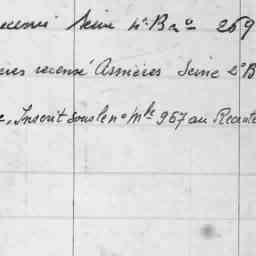 recensé Seine 4e Bau 269
recensé Asnières Seine 2e B
Inscrit sous le n° Mle 967 au Recrute